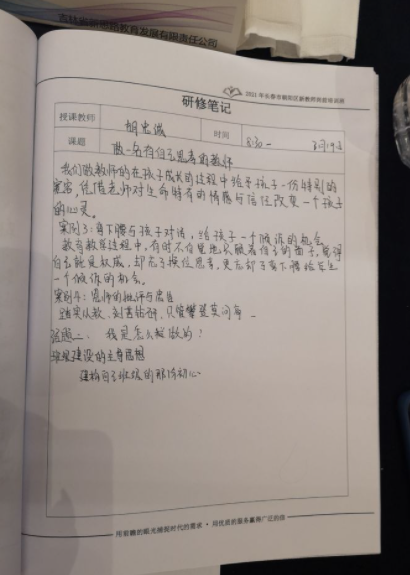 吉林省新思路教育发展有限责任公司
2021年长春市朝阳区新教师岗前培训班
研修笔记
授课教师
胡忠诚
时间
8:30-
3月19日
课题
做一名有自己思考的教师
我们做教师的在孩子成长的过程中给予孩子一份特别的
宽容,凭借老师对生命特有的情感与信任改变一个孩子
的心灵。
案例3:弯下腰与孩子对话,给孩子一个倾诉的机会
教育教学过程中,有时不自觉地只顾着自己的面子,觉得
自己就是权威,却忘了换位思考,更忘却了弯下腰给学生
一个倾诉的机会。
案例4:恩师的批评与
踏实从教,刻苦钻研,只管攀登莫问高
话题二、我是怎么做的?
班级建设的主导思想
建构自己班级的
用前瞻的眼光捕捉时代的需求·用优质的服务赢得广泛的信